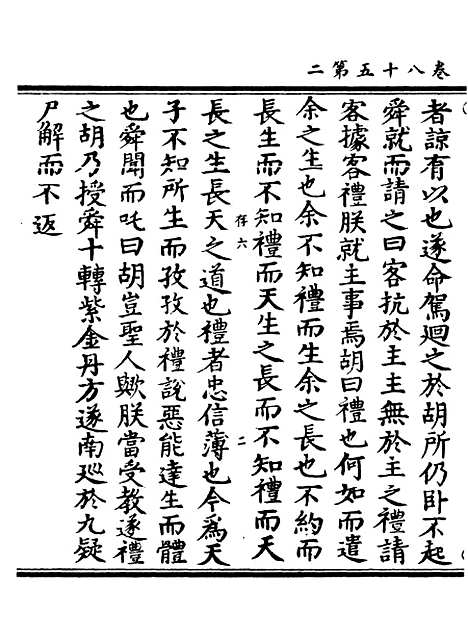 二第五十八卷
者諒有以也遂命駕迴之於胡所仍卧不起
舜就而請之曰客抗於主主無於主之禮請
客據客禮朕就主事焉胡曰禮也何如而遣
余之生也余不知禮而生余之長也不約而
長生而不知禮而天生之長而不知禮而天
存六
二
長之生長天之道也禮者忠信薄也今為天
子不知所生而孜孜於禮說惡能達生而體
也舜聞而吒曰胡豈聖人歟朕當受教遂禮
之胡乃授舜十轉紫金丹方遂南廵於九疑
尸解而不返